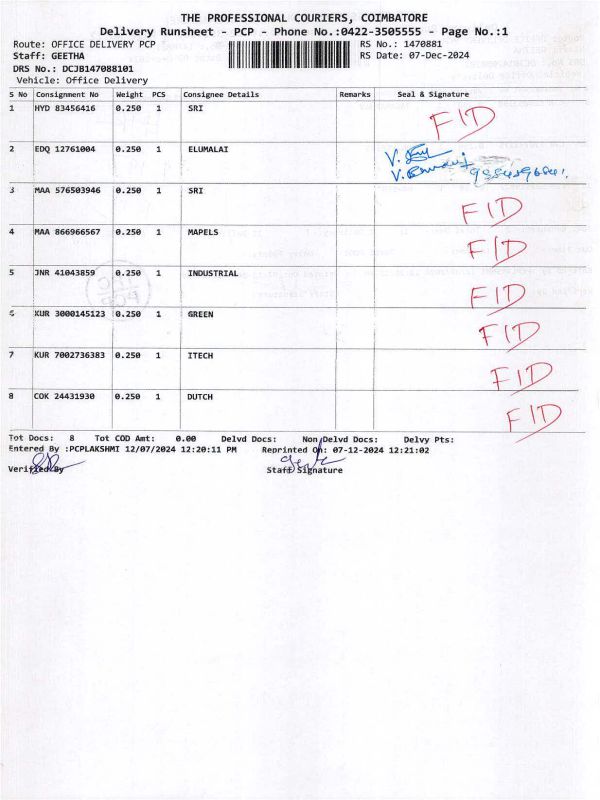 THE PROFESSIONAL COURIERS, COIMBATORE
Delivery Runsheet - PCP - Phone No.:0422-3505555 - Page No.:1
Route: OFFICE DELIVERY PCP RS No.: 1470881
Staff: GEETHA RS Date: 07-Dec-2024
DRS No.: DCJB147088101
Vehicle: Office Delivery
S No Consignment No Weight PCS Consignee Details Remarks Seal & Signature
1 HYD 83456416 0.250 1 SRI FID
2 EDQ 12761004 0.250 1 ELUMALAI
3 MAA 576503946 0.250 1 SRI FID
4 MAA 866966567 0.250 1 MAPELS FID
5 JNR 41043859 0.250 1 INDUSTRIAL FID
6 KUR 3000145123 0.250 1 GREEN FID
7 KUR 7002736383 0.250 1 ITECH FID
8 COK 24431930 0.250 1 DUTCH FID
Tot Docs: 8 Tot COD Amt: 0.00 Delvd Docs: Non Delvd Docs: Delvy Pts:
Entered By :PCPLAKSHMI 12/07/2024 12:20:11 PM Reprinted On: 07-12-2024 12:21:02
Verified By Staff Signature